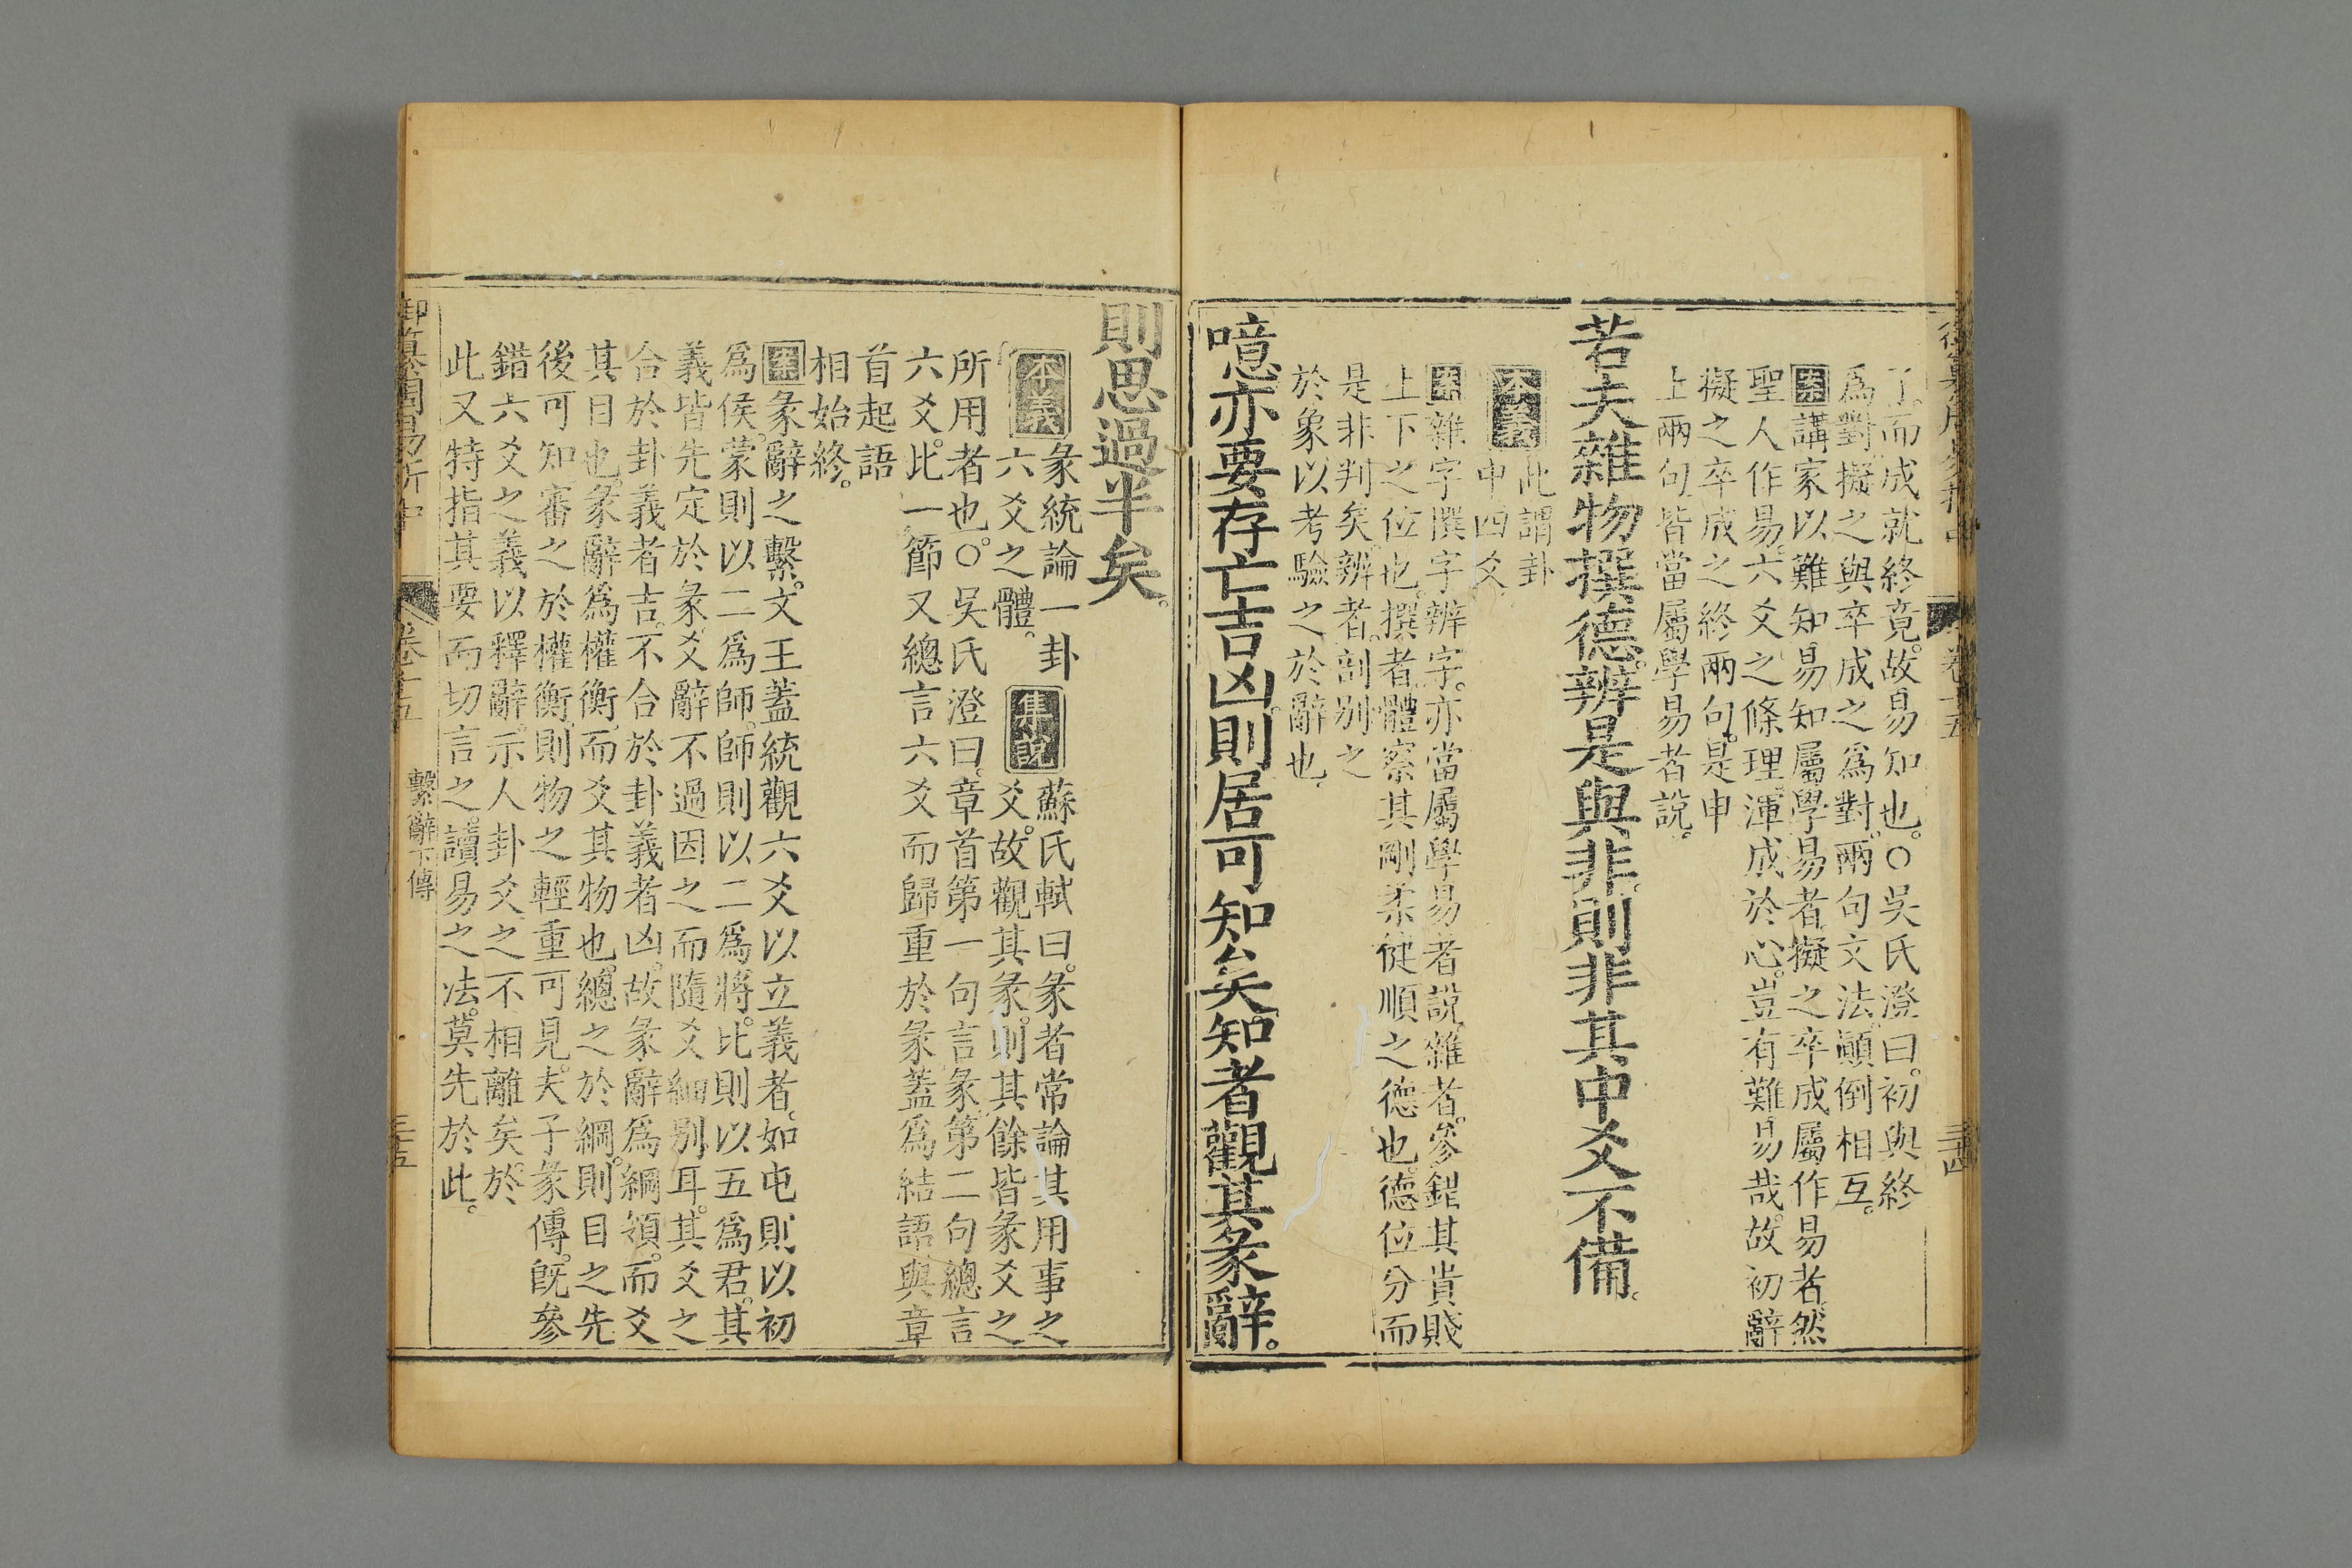 了。而成就終竟。故易知也。○吳氏澄曰。初與終
爲對。擬之與卒成之爲對。兩句文法。顚倒相互。
案講家以難知。易知屬學易者。擬之卒成屬作易者。然
聖人作易。六爻之條理。渾成於心。豈有難易哉。故初辭
擬之卒成之終兩句。是申
上兩句。皆當屬學易者說。
若夫雜物撰德。辨是與非。則非其中爻不備。
本義
此謂卦
中四爻
案雜字撰字辨字。亦當屬學易者說。雜者。參錯其貴賤
上下之位也。撰者。體察其剛柔健順之德也。德位分而
是非判矣。辨者。剖別之
於象以考驗之於辭也。
噫亦要存亡吉凶。則居可知矣。知者觀其彖辭。
御纂周易折中
卷十五
三十四
則思過半矣。
本義
彖統論一卦
六爻之體。
集說
蘇氏軾曰。彖者常論其用事之
爻。故觀其彖。則其餘皆彖爻之
所用者也。○吳氏澄曰。章首第一句言彖。第二句總言
六爻。此一節又總言六爻而歸重於彖。蓋爲結語與章
首起語
相始終。
案彖辭之繫。文王蓋統觀六爻以立義者。如屯則以初
爲侯。蒙則以二爲師。師則以二爲將。比則以五爲君。其
義皆先定於彖。爻辭不過因之而隨爻細別耳。其爻之
合於卦義者吉。不合於卦義者凶。故彖辭爲綱領。而爻
其目也。彖辭爲權衡。而爻其物也。總之於綱。則目之先
後可知。審之於權衡。則物之輕重可見。夫子彖傳。旣參
錯六爻之義以釋辭。示人卦爻之不相離矣。於
此又特指其要而切言之。讀易之法。莫先於此。
御纂周易折中
卷十五
繫辭下傳
三十五